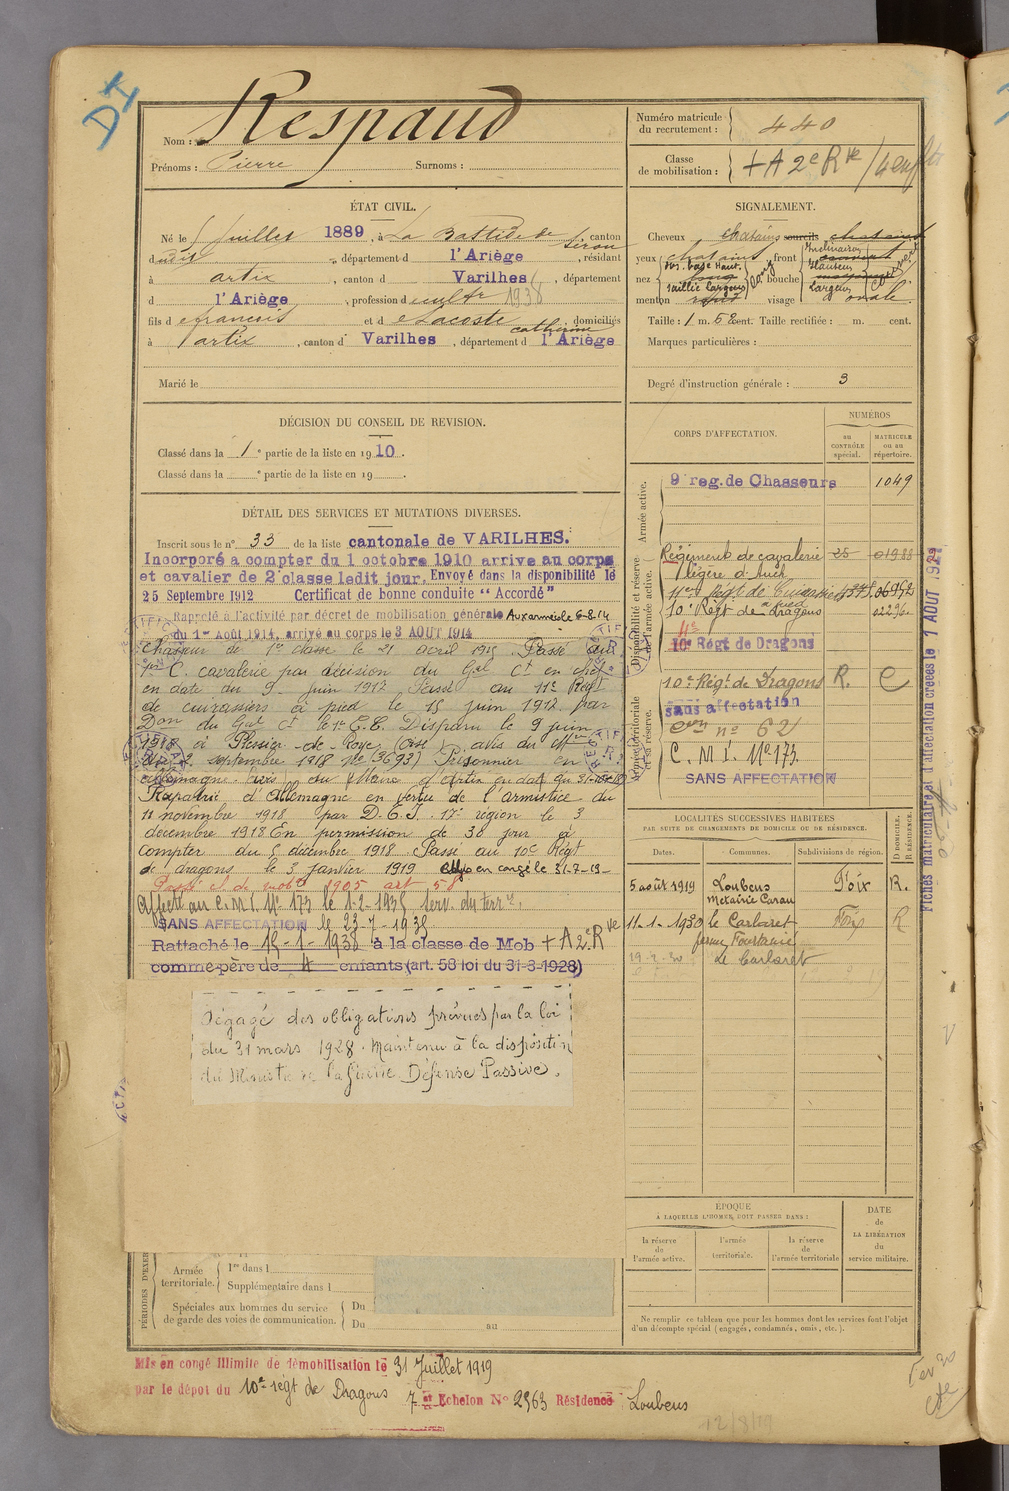 DI
Nom : Respaud
Prénoms : Pierre Surnoms :
Numéro matricule du recrutement : 440
Classe de mobilisation : + A 2e Rve / 4 enfts
ÉTAT CIVIL.
Né le 5 Juillet 1889, à La Bastide de Sérou canton
dudit, département d l'Ariège, résidant
à artix, canton d Varilhes, département
d l'Ariège, profession d cultr 1938
fils d e francois et d e Lacoste catherine, domiciliés
à artix, canton d Varilhes, département d l'Ariège
Marié le
SIGNALEMENT.
Cheveux chatains sourcils chatains
yeux chatains front Inclinaison Hauteur Largeur
nez Dos. base Haut. Saillie Largeur bouche
menton rond visage ovale.
Taille : 1 m. 62 cent. Taille rectifiée : m. cent.
Marques particulières :
Degré d'instruction générale : 3
DÉCISION DU CONSEIL DE REVISION.
Classé dans la 1 e partie de la liste en 1910.
Classé dans la e partie de la liste en 19 .
DÉTAIL DES SERVICES ET MUTATIONS DIVERSES.
Inscrit sous le n° 33 de la liste cantonale de VARILHES.
Incorporé a compter du 1 octobre 1910 arrive au corps
et cavalier de 2e classe ledit jour. Envoyé dans la disponibilité le
25 Septembre 1912 Certificat de bonne conduite "Accordé"
Rappelé à l'activité par décret de mobilisation générale Aux armées le 6-8-14
du 1er Août 1914, arrivé au corps le 3 AOUT 1914
Chasseur de 1e classe le 21 avril 1915. Passé au
1er C. cavalerie par décision du Gal Ct en chef
en date du 9 juin 1917 Passé au 11e Régt
de cuirassiers à pied le 15 juin 1917 par
Don du Gal Ct le 1e C.C. Disparu le 9 juin
1918 à Plessier-de-Roye (Oise) avis du Mtre
du 2 septembre 1918 No (3693) Prisonnier en
Allemagne avis du Maire d'Artix en dat du 31-10-18
Rapatrié d'Allemagne en vertu de l'armistice du
11 novembre 1918 par D.G.I. 17e région le 3
décembre 1918 En permission de 30 jour à
compter du 5 décembre 1918 Passé au 10e Régt
de dragons le 3 janvier 1919 en congé le 31-7-19-
Passé cl. de mobon 1905 art 58
Affecté au C.M.I. No 173 le 1-2-1935 serv. du terre.
SANS AFFECTATION le 23-7-1935
Rattaché le 15-1-1938 à la classe de Mob + A 2e Rve
comme père de 4 enfants (art. 58 loi du 31-3-1928)
Dégagé des obligations prévues par la loi
du 31 mars 1928. Maintenu à la disposition
du Ministre de la Guerre. Défense Passive.
CORPS D'AFFECTATION.
NUMÉROS
au CONTRÔLE spécial.
MATRICULE ou au répertoire.
Armée active.
9e reg. de Chasseurs 1049
Disponibilité et réserve de l'armée active.
Régiment de cavalerie 25 01988
légère d'Auch
11e Régt de Cuirassiers à pied 4378 06952
10e Régt de dragons 02296
10e Régt de Dragons
Armée territoriale et sa réserve.
10e Régt de Dragons R. C
sans affectation
no 62
C. M. I. No 173.
SANS AFFECTATION
LOCALITÉS SUCCESSIVES HABITÉES
PAR SUITE DE CHANGEMENTS DE DOMICILE OU DE RÉSIDENCE.
Dates. Communes. Subdivisions de région. D DOMICILE. R RÉSIDENCE.
5 août 1919 Loubens Foix R.
Métairie Caran
11-1-1930 le Carlaret Foix R
ferme Fourtanié
19-2-30 Le Carlaret
Fiches matriculaire et d'affectation créées le 1 AOUT 1929
ÉPOQUE
À LAQUELLE L'HOMME DOIT PASSER DANS :
la réserve de l'armée active.
l'armée territoriale.
la réserve de l'armée territoriale
DATE de LA LIBÉRATION du service militaire.
Ne remplir ce tableau que pour les hommes dont les services font l'objet
d'un décompte spécial (engagés, condamnés, omis, etc.).
PÉRIODES D'EXER
Armée territoriale.
1re dans l
Supplémentaire dans l
Spéciales aux hommes du service
de garde des voies de communication.
Du
Du au
Mis en congé illimité de démobilisation le 31 Juillet 1919
par le dépot du 10e régt de Dragons 7e Echelon No 2963 Résidence Loubens
12/8/19